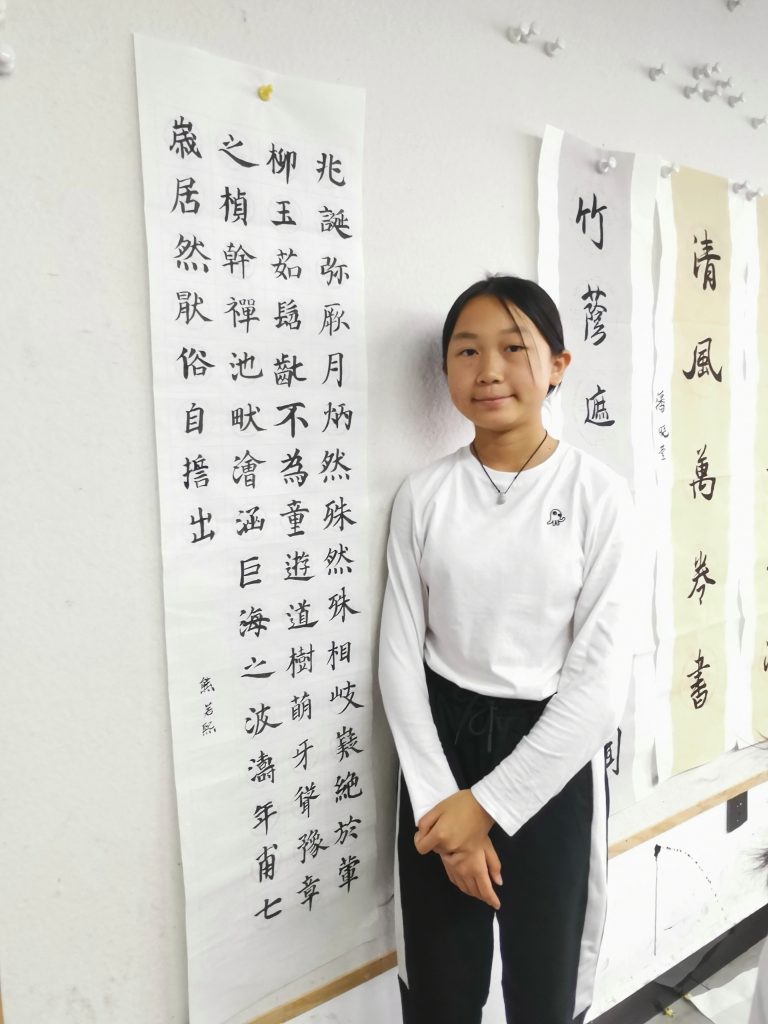 兆誕弥厥月炳然殊然殊相岐嶷絶於葷
柳玉茹髫齔不為童遊道樹萌牙聳豫章
之楨幹禪池畎澮涵巨海之波濤年甫七
歲居然猒俗自誓出
竹蔭遮
清風萬卷書